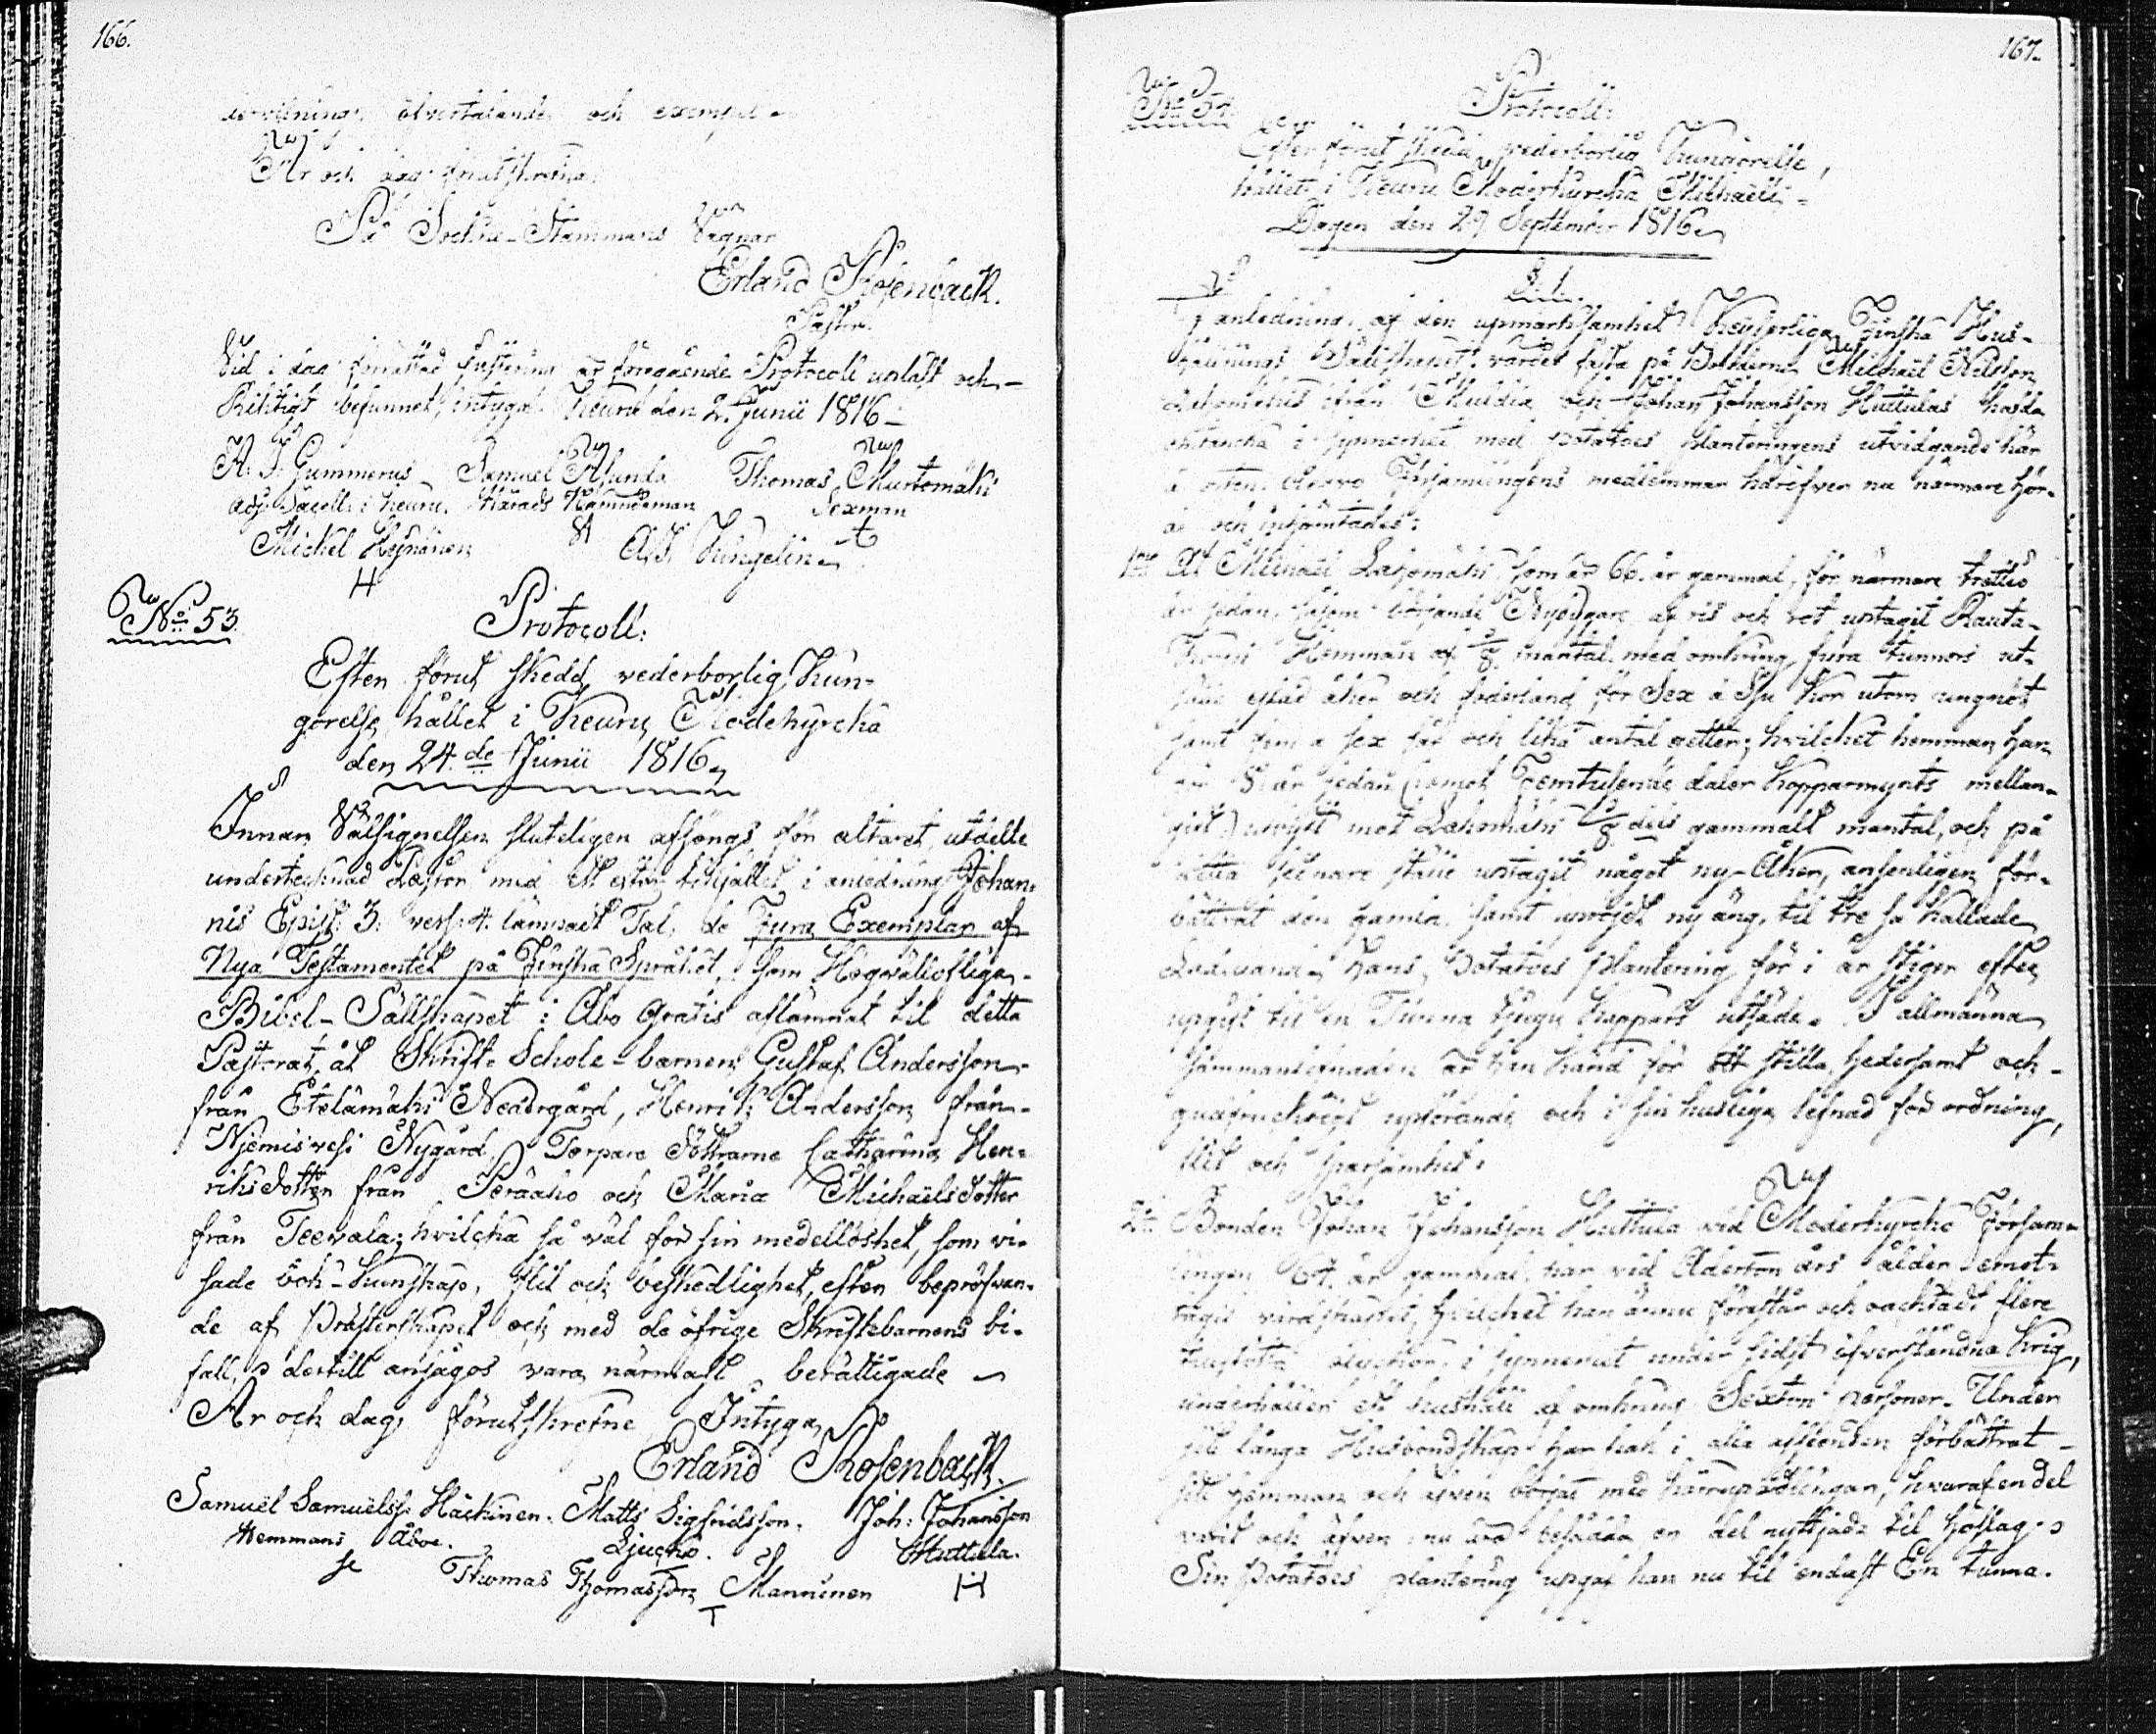 166.
öfvertalande och exempel
År och dag förutskrefne.
På Sockne-Stämmans Vägnar
Erland Rosenback.
Pastor.
Vid i dag förrättad justering är föregående Protocoll upläst och
Riktigt befunnet, intygar Keuru den 2. Junii 1816
A. J. Gummerus Samuel Asunda Thomas Murtomäki
adj. Sacell: i Keuru. Härads Nämndeman Sexman
Michel Hoskonen
H
No 53.
Protocoll:
Efter förut skedd vederborlig Kun-
görelse, hållet i Keuru Moderkyrcka
den 24.de Junii 1816
Innan Välsignelsen sluteligen afsöngs för altaret, utdelte
undertecknad Pastor med ett i anledning Johan-
nis Epist: 3: vers: 4. lämpadt Tal, de Fyra Exemplar af
Nya Testamentet på Finska Språket, som Högvälloflige
Bibel-Sällskapet i Åbo Gratis aflämnat til detta
Pastorat, åt Skrift-Schole-barnen Gustaf Andersson
från Etelämäki Neadrgård, Henrik Andersson från
Niemisvesi Nygård, Torpare Döttrarne Catharina Hen-
riksdotter från Peräaho och Maria Michaelsdotter
från Teevala; hvilcka så väl för sin medellöshet, som vi-
sade bok-kunskap, flit och beskedlighet, efter bepröfvan-
de af Prästerskapet och med de öfrige Skriftebarnens bi-
fall, dertill ansågos vara närmast berättigade
År och dag förutskrefne Intygar
Erland Rosenback.
Samuel Samuelss: Häckinen. Matts Sigfridsson. Joh: Johansson
Hemmans Åboe. Ljucko. Huttula.
Thomas Thomasson Manninen H
T
167.
Protocoll:
Efter förut skedd vederbörlig Kungörelse,
hållet i Keuru Moderkyrcka Michaelis
Dagen den 29 September 1816
§ 1.
I anledning af den upmärksamhet Kejserliga Finska Hus-
hållnings Sällskapet värdet fästa på Bönderne Michael Nilsson
Lahomäki ifrån Muldia och Johan Johansson Huttulas hafda
omtancka i synnerhet med potatoes planteringens utvidgande här
å orten. blevo Församlingens medlemmar häröfver nu närmare hör-
da och inhämtades:
1mo At Michael Lahomäki, som är 66. år gammal, för närmare trettio
år sedan, såsom börjande Nybyggare af ris och rot uptagit Rauta-
Hemman af mantal med omkring fyra tunnors ut-
säde åker och foderland för Sex à Sju Kor utom ungnöt
samt fem a sex får och lika antal getter; hvilcket hemman han
år sedan (emot Femtusende daler Kopparmynts mellan-
gift) utbytt mot Lahomäki dels gammalt mantal, och på
detta senare ställe uptagit något ny-Åker, ansenligen för-
bättrat den gamla, samt uprögt ny äng, til tre så kallade
Hans Potatoes plantering för i år stiger efter
upgift til en Tunna tjugu Kappars utsäde. I allmänna
sammanlefnaden är han känd för ett stilla, hedersamt och
gudfrucktigt upförande och i sin husliga lefnad för ordning,
flit och sparsamhet.
2do Bonden Johan Johansson Huttula vid Moderkyrcko Försam-
lingen 64. år gammal, har vid Aderton års ålder emot-
tagit värdskapet, hvilchet han ännu förestår och oachtadt flere
olyckor i synnerhet under sidst öfverståndna krig,
underhåller ett hushåll af omkring Sexton personer. Under
sitt långa Husbondskap har han i alla afseenden förbättrat
sitt Hemman, och äfven börjat med kärrupodlingar, hvaraf en del
varit och äfven nu äro besådda en del nyttjade til höslag.
Sin Potatoes plantering upgaf han nu til endast En tunna.